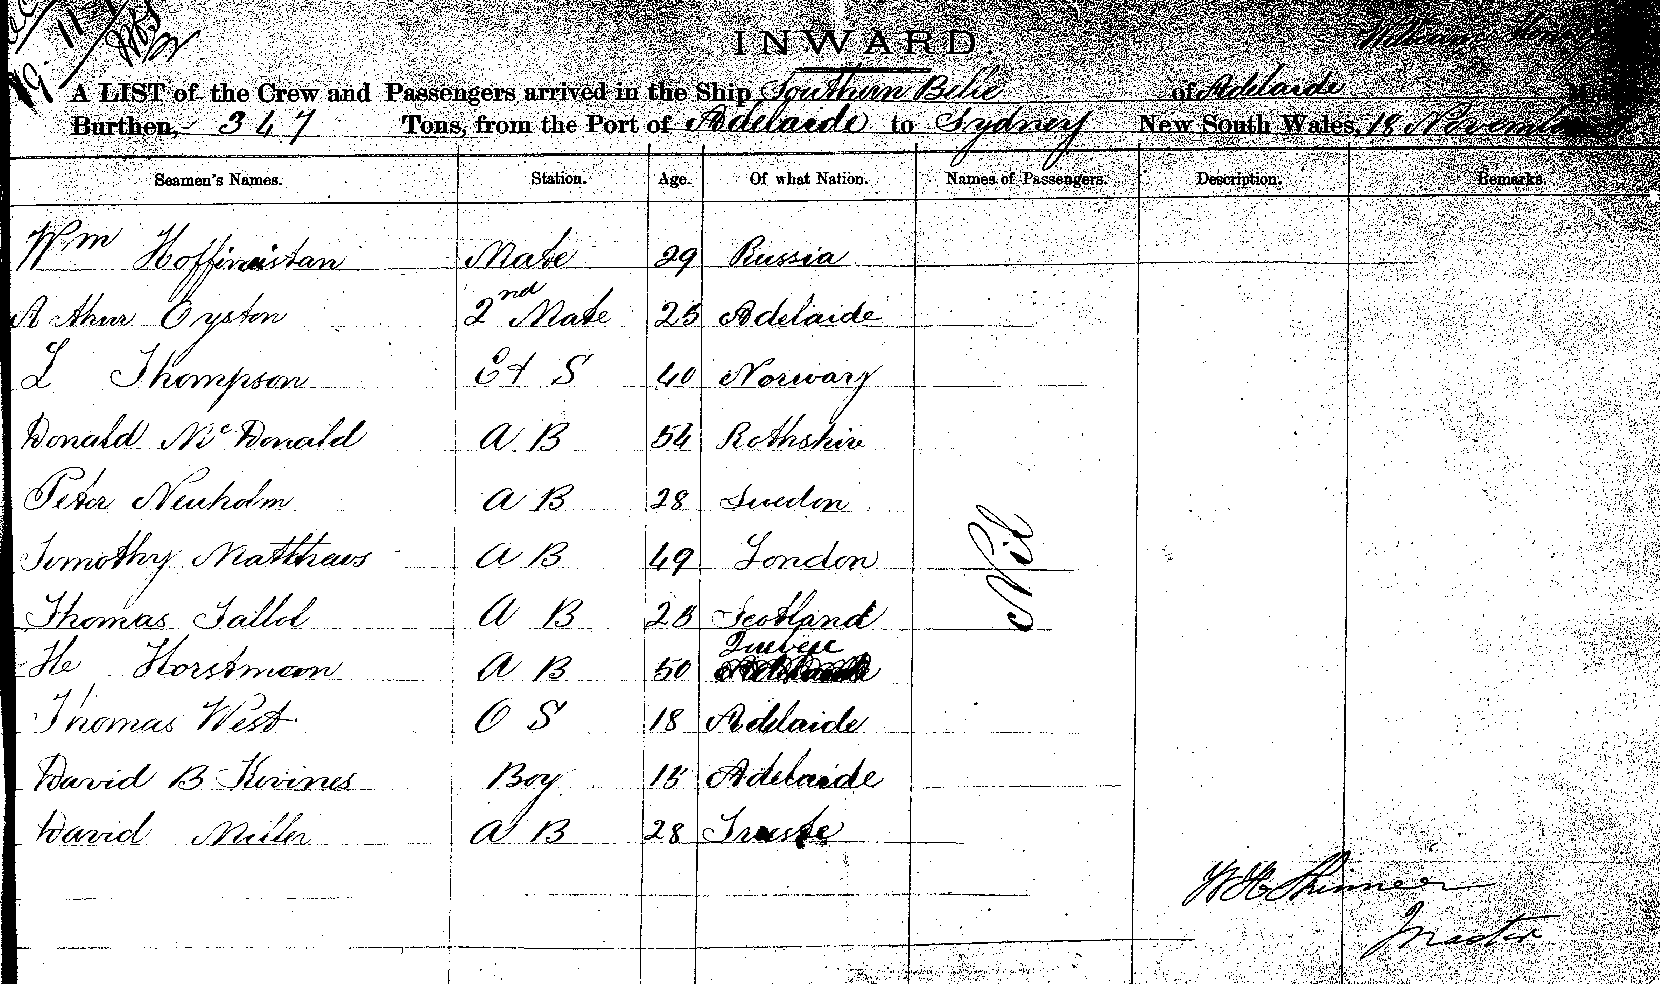 INWARD.
William Henry
A LIST of the Crew and Passengers arrived in the Ship Southern Belle of Adelaide
Burthen, 347 Tons, from the Port of Adelaide to Sydney New South Wales, 18 November
Seamen's Names. Station. Age. Of what Nation. Names of Passengers. Description. Remarks
Wm Mate 29 Russia
Arthur Oyston 2nd Mate 25 Adelaide
L Thompson S 40 Norway
Donald McDonald A B 54 Rothshire
Peter Neuholm A B 28 Swedon
Timothy Matthews A B 49 London
Nil
Thomas A B 28 Scotland
He Horstman A B 50
Thomas West O S 18 Adelaide
David B Boy 15 Adelaide
David Miller A B 28 Trieste
W H Skinner
Master